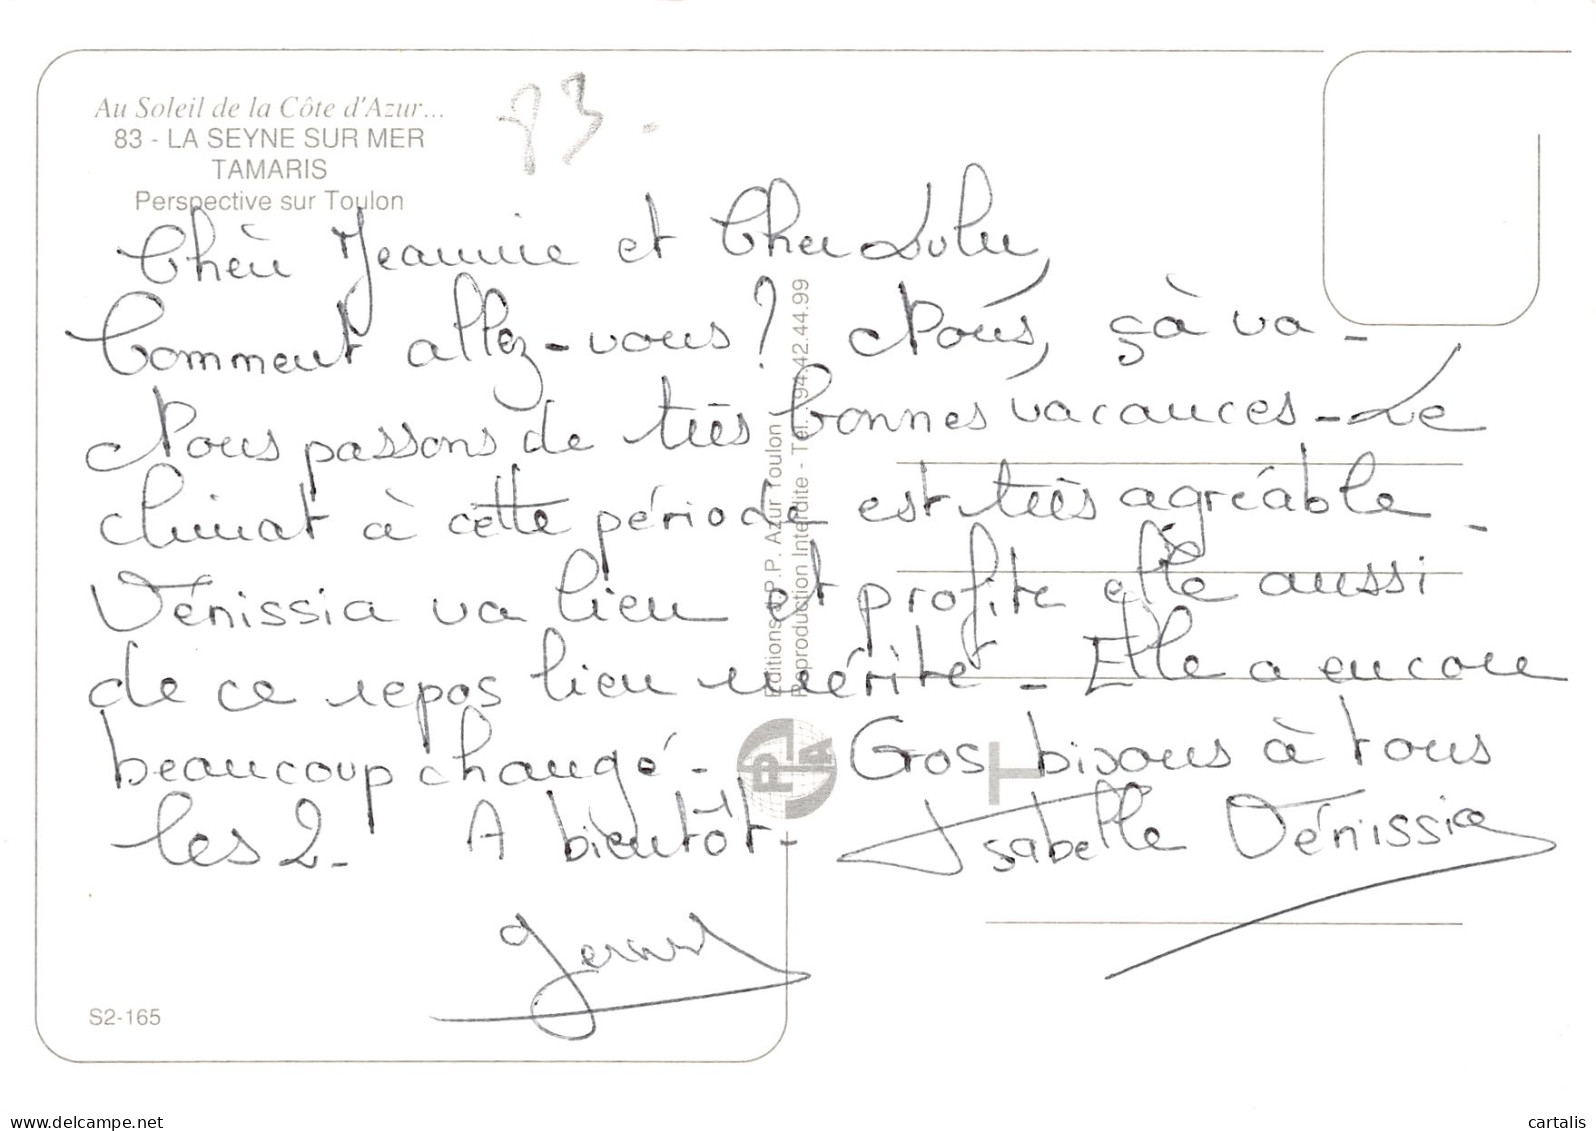 Au Soleil de la Côte d'Azur...
83 - LA SEYNE SUR MER
TAMARIS
Perspective sur Toulon
83 -
Chère Jeannie et Cher Lulu,
Comment allez-vous? Nous, çà va -
Nous passons de très bonnes vacances - Le
climat à cette période est très agréable -
Vénissia va bien et profite elle aussi
de ce repos bien mérité - Elle a encore
beaucoup changé - Gros bisous à tous
les 2 - A bientôt -
Isabelle Vénissia
Gérard
Editions P.P. Azur Toulon
Reproduction Interdite - Tél. : 94.42.44.99
PPA
S2-165
www.delcampe.net
cartalis